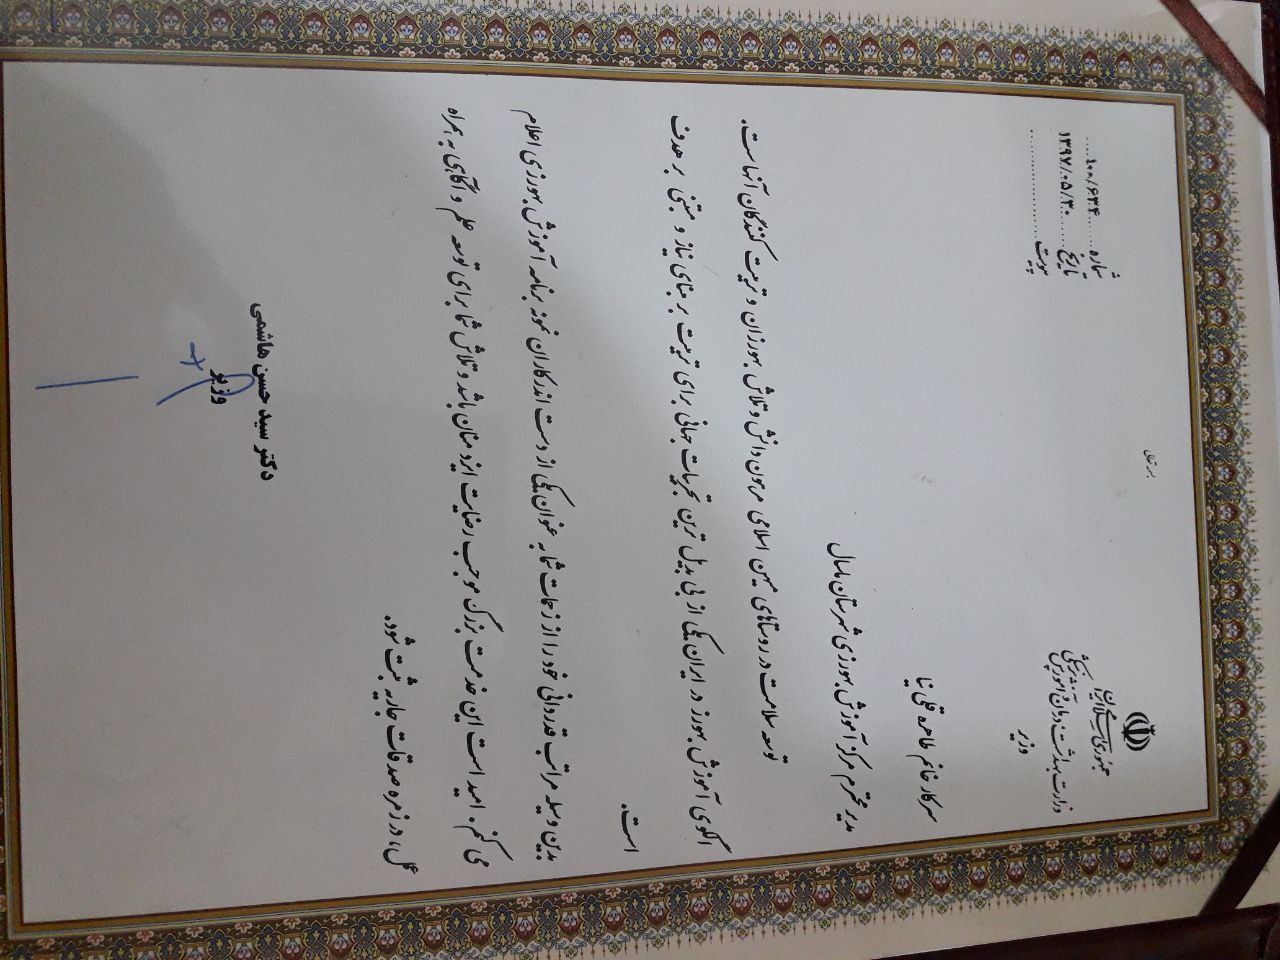 بسمه تعالی
جمهوری اسلامی ایران
وزارت بهداشت، درمان و آموزش پزشکی
وزیر
شماره ۱۰۰/۶۳۴
تاریخ ۱۳۹۷/۰۵/۳۰
پیوست
سرکار خانم طاهره قلی نیا
مدیر محترم مرکز آموزش بهورزی شهرستان ماسال
توسعه سلامت در روستاهای میهن اسلامی مرهون دانش و تلاش بهورزان و تربیت کنندگان آنهاست.
الگوی آموزش بهورز در ایران یکی از بی بدیل ترین تجربیات جهانی برای تربیت بر مبنای نیاز و مبتنی بر هدف
است.
بدین وسیله مراتب قدردانی خود را از زحمات شما به عنوان یکی از دست اندرکاران نمونه برنامه آموزش بهورزی اعلام
می کنم. امید است این خدمت بزرگ موجب رضایت ایزد منان باشد و تلاش شما برای توسعه علم و آگاهی به همراه
عمل، در زمره صدقات جاریه ثبت شود.
دکتر سید حسن هاشمی
وزیر